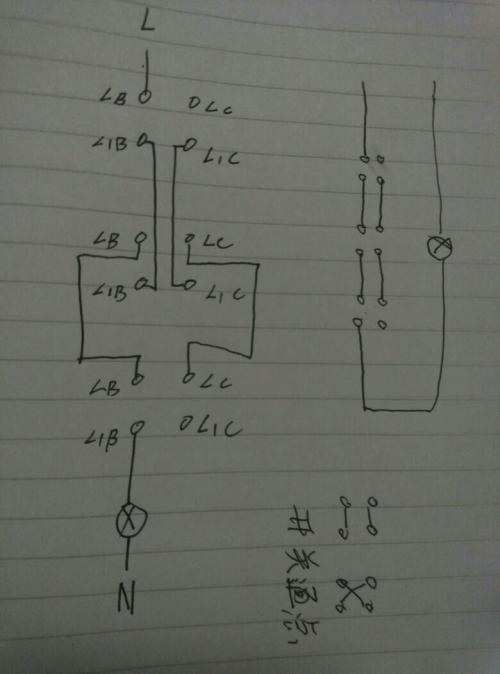 L
LB LC
L1B L1C
LB LC
L1B L1C
LB LC
L1B L1C
N
开关通点